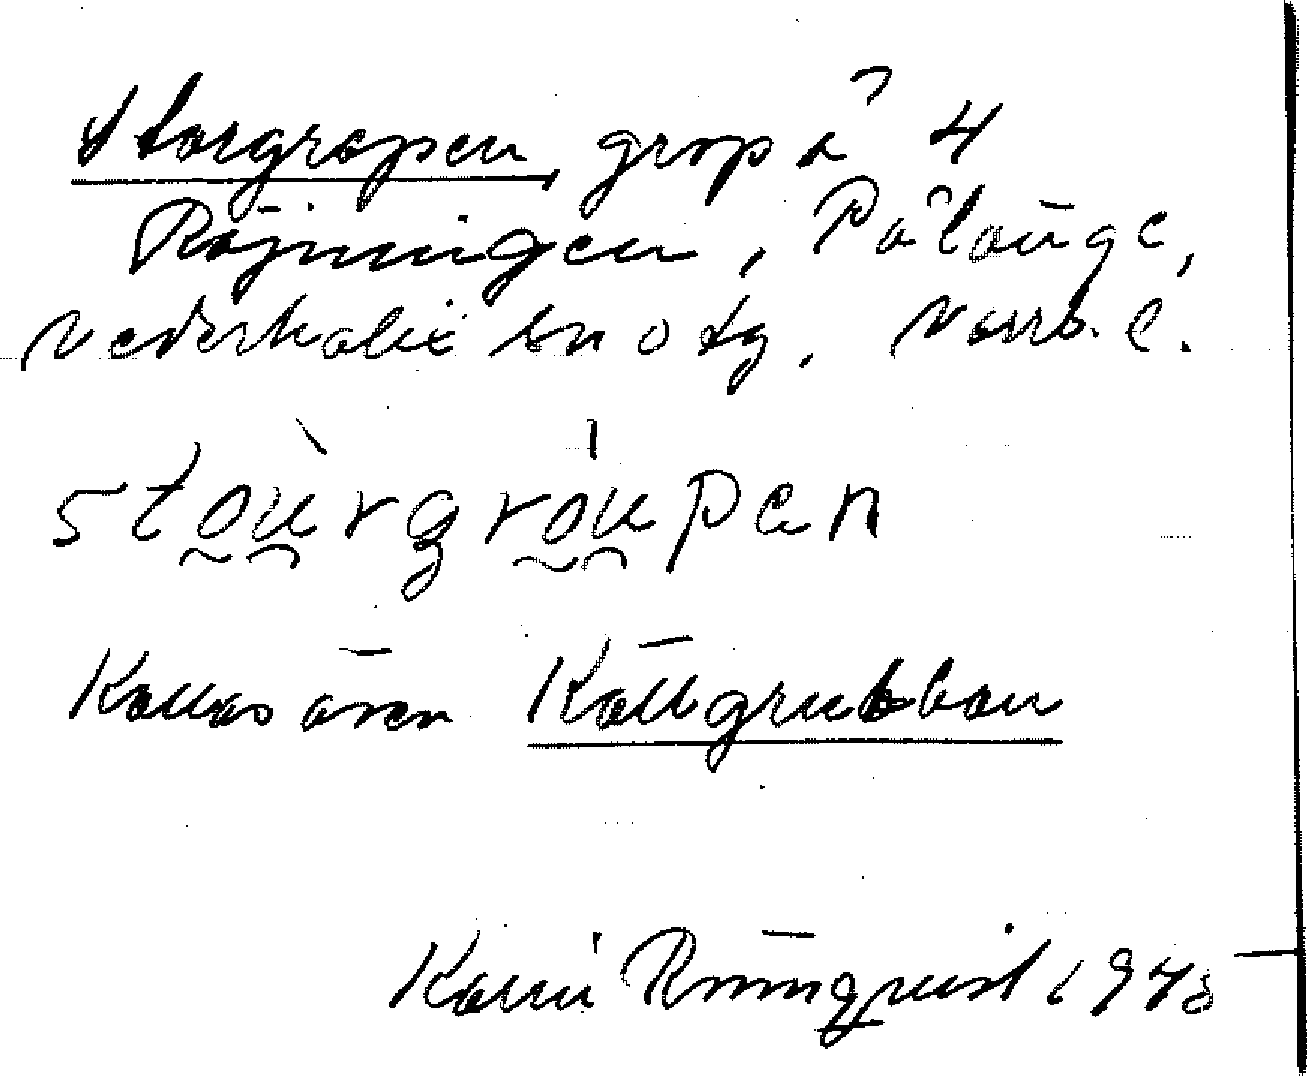 Storgropen, grop å 4
Röjningen, Pålänge,
Nederkalix sn o tg. Norrb. l.
stòurgróupen
Kallas även Källgrubban
Karin Rönnquist 1943